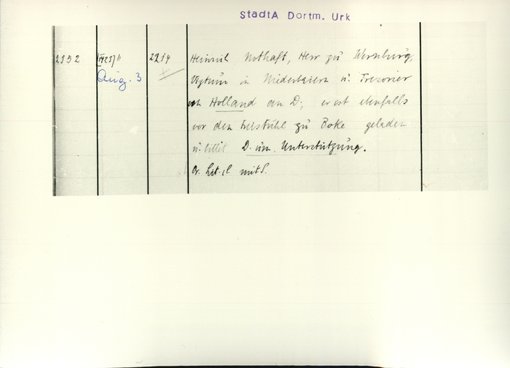 StadtA Dortm. Urk
2192
2214
Heinrich Nothaft, Herr zu Wernburg,
Viztum in Niederbaiern u. Tresorier
von Holland an D; er ist ebenfalls
vor den Freistuhl zu Boke geladen
u. bittet D. um Unterstützung.
Or. mit S.
Aug. 3